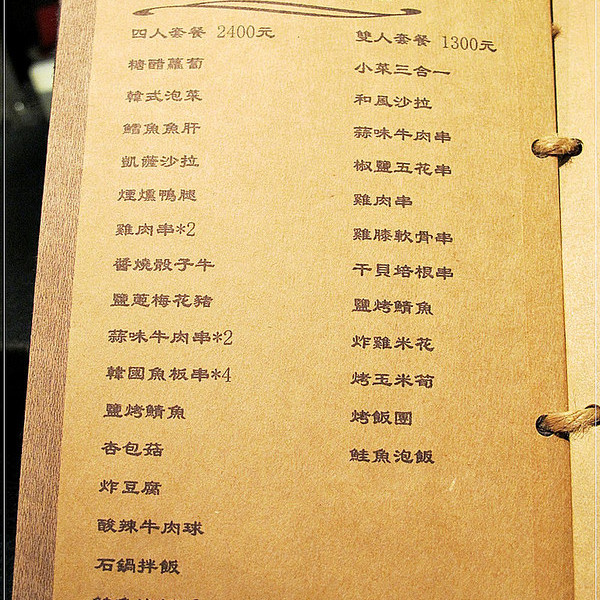 四人套餐 2400元
糖醋蘿蔔
韓式泡菜
鱈魚魚肝
凱薩沙拉
煙燻鴨腿
雞肉串*2
醬燒骰子牛
鹽蔥梅花豬
蒜味牛肉串*2
韓國魚板串*4
鹽烤鯖魚
杏包菇
炸豆腐
酸辣牛肉球
石鍋拌飯
雙人套餐 1300元
小菜三合一
和風沙拉
蒜味牛肉串
椒鹽五花串
雞肉串
雞膝軟骨串
干貝培根串
鹽烤鯖魚
炸雞米花
烤玉米筍
烤飯團
鮭魚泡飯